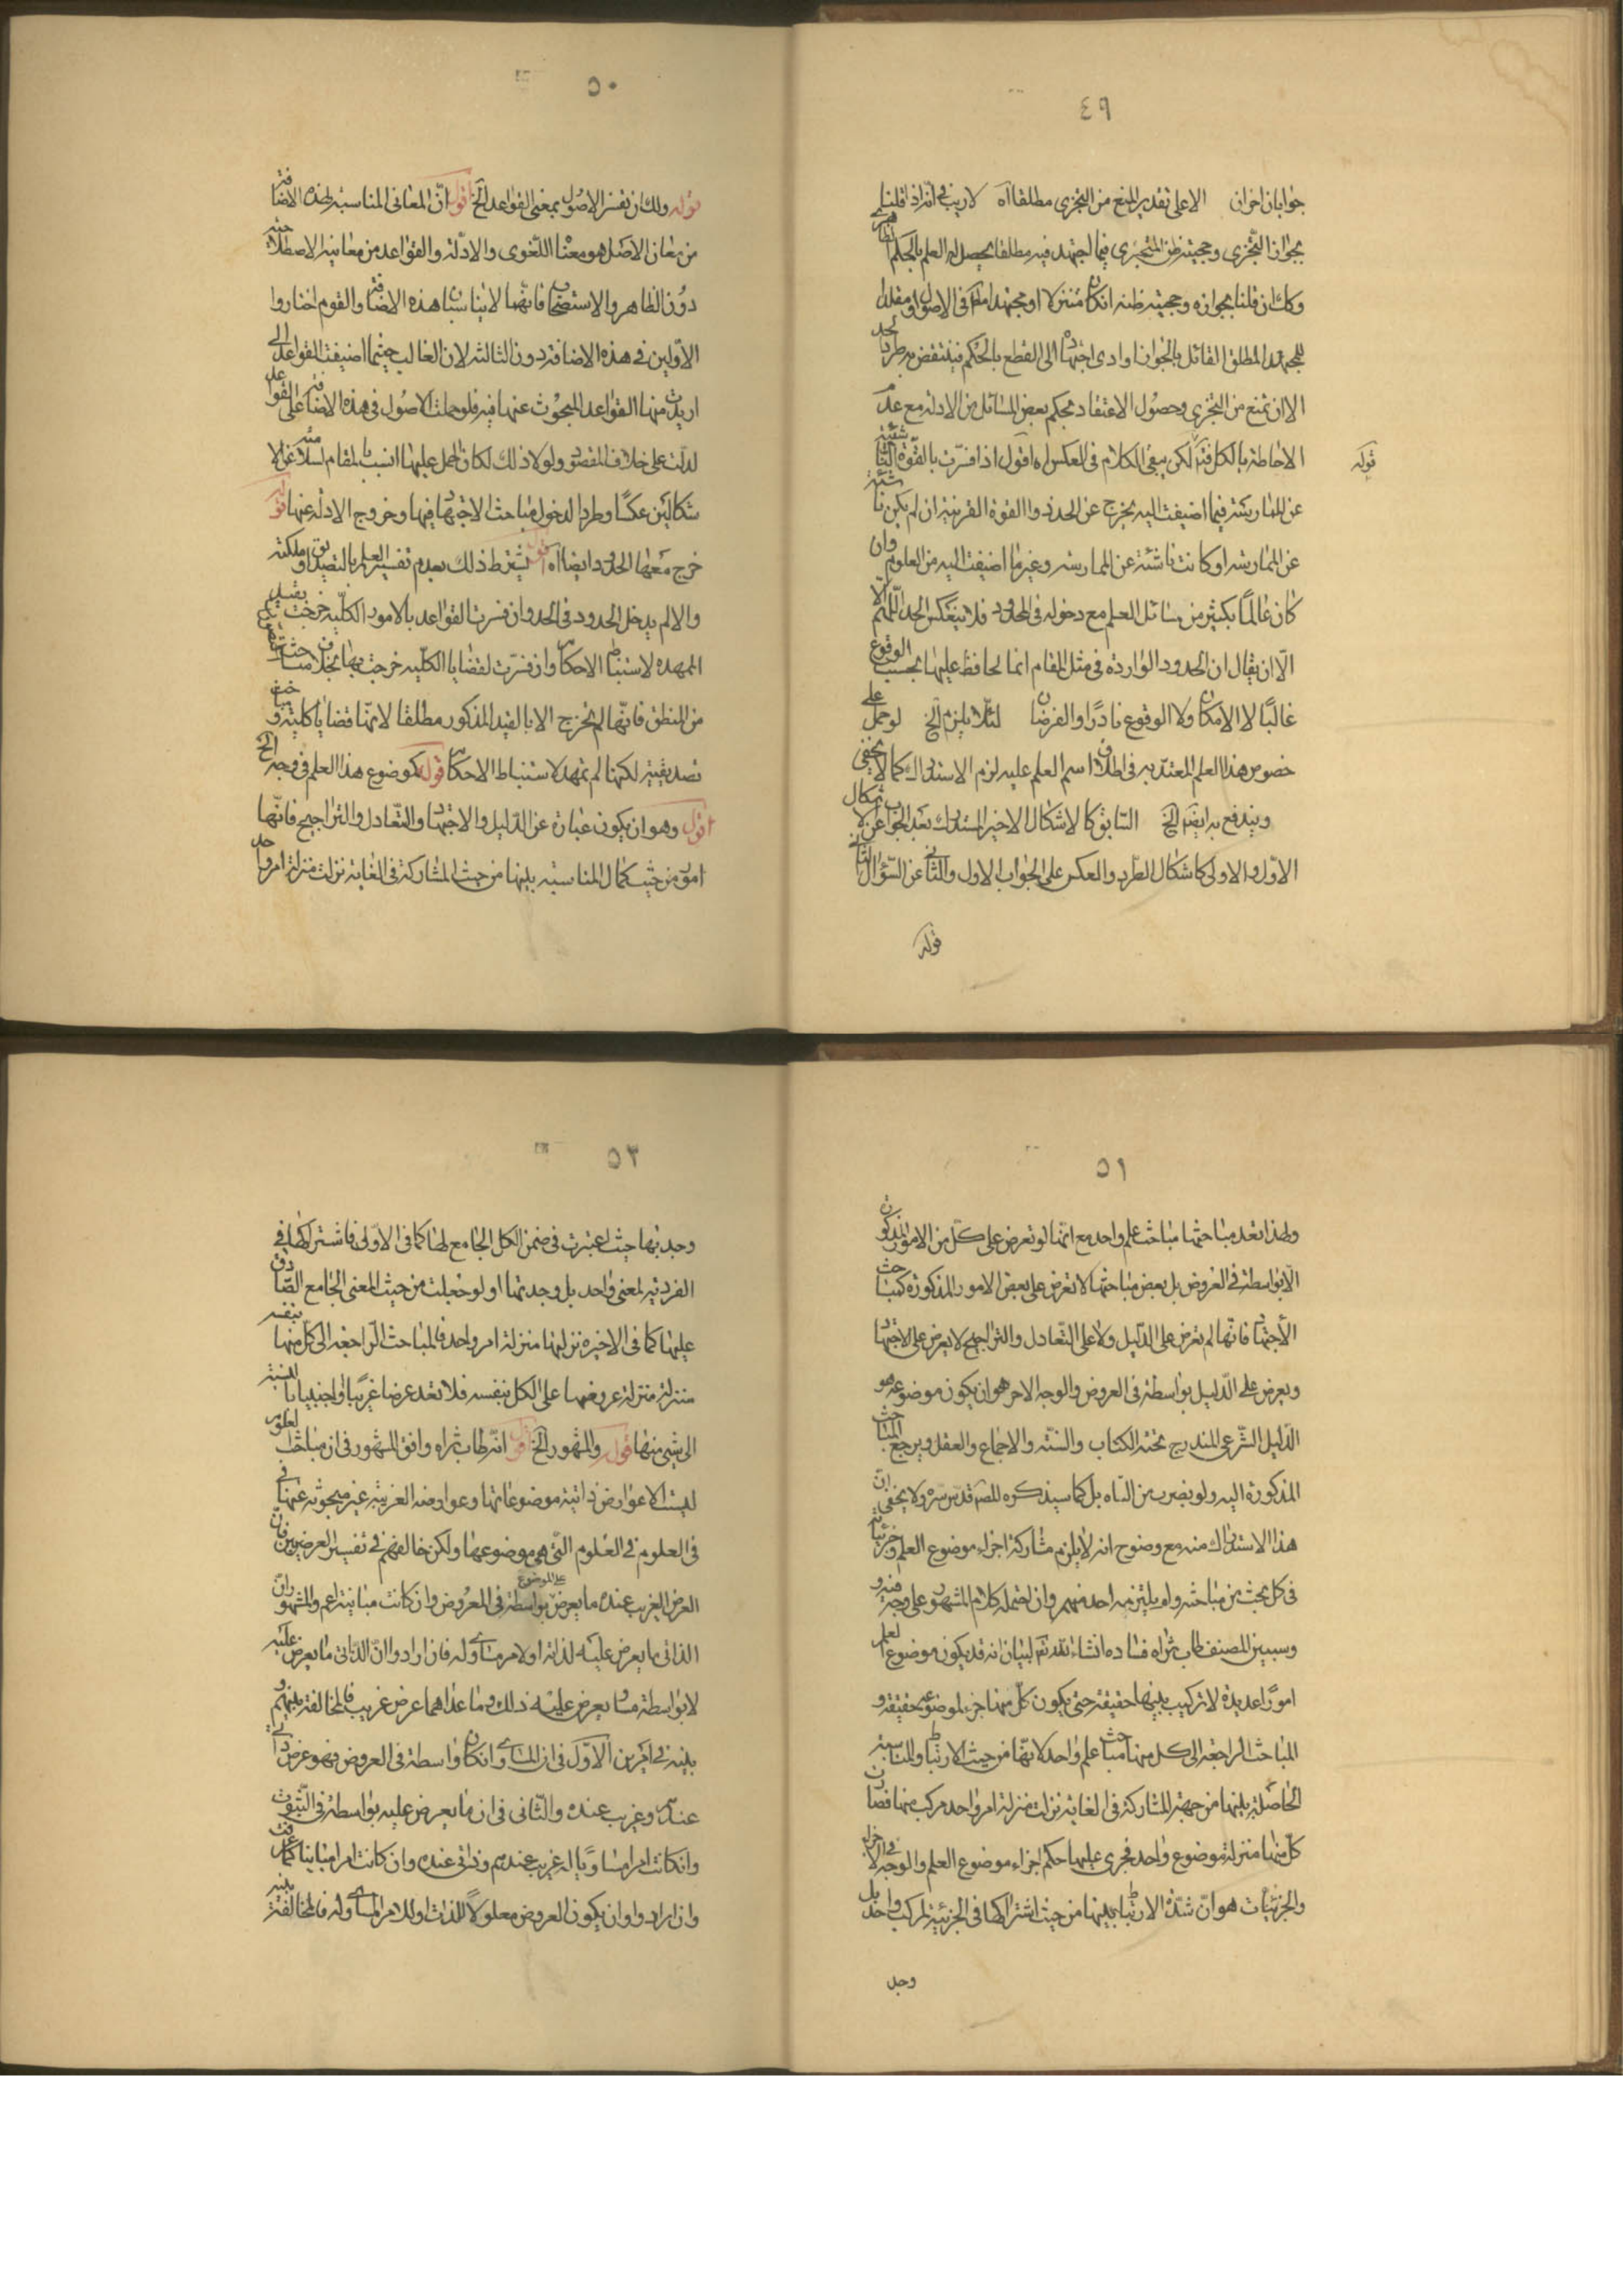 ٤٩
جوابان اخران الا على تقدير المنع من التجزى مطلقا اه لا ريب فى انه اذا قلنا
بجواز التجزى وحجية ظن المتجزى فيما اجتهد فيه مطلقا يحصل له العلم بالحكم الظاهرى
وكك ان قلنا بجوازه وحجية ظنه انكان او مجتهدا فى الاصول او مقلدا
للمجتهد المطلق القائل بالجواز او ادى اجتهاده الى القطع بالحكم فينتقض به طرد الحد
الا ان نمنع من التجزى وحصول الاعتقاد بحكم بعض المسائل من الادلة مع عدم
الاحاطة بالكل لكن يبقى الكلام فى العكس اه اقول اذا فسرت بالقوة الناشئة
قوله
عن الممارسة فيما اضيفت اليه يخرج عن الحدود القوة القريبة ان لم يكن ناشئة
عن الممارسة او كانت ناشئة عن الممارسة وغير ما اضيفت اليه من العلوم وان
كان عالما بكثير من مسائل العلم مع دخوله فى المحدود فلا ينعكس الحد اللهم الا
الا ان يقال ان الحدود الواردة فى مثل المقام انما يحافظ عليها بحسب الوقوع
غالبًا لا الامكان ولا الوقوع نادرًا والفرضان لئلا يلزم الخ لو حمل على
خصوص هذا العلم المعتد به فى اطلاق اسم العلم عليه لزم الاستدراك كما لا يخفى
ويندفع به ايضا الخ السابق كالاشكال الاخير المستدرك بعد الجواب عن الاشكال
الاول والاولى كاشكال الطرد والعكس على الجواب الاول والثانى عن السؤال الثانى
قوله
٥٠
قوله ولك ان تفسر الاصول بمعنى القواعد الخ اقول ان المعانى المناسبة لهذه الاضافة
من معان الاصل هو معناه اللغوى والادلة والقواعد من معانيه الاصطلاحية
دون الظاهر والاستصحاب فانهما لا يناسبان هذه الاضافة والقوم اختاروا
الاولين فى هذه الاضافة دون الثالثة لان الغالب حيثما اضيفت القواعد الى
اريدت منها القواعد المبحوث عنها فيه فلو حملت الاصول فى هذه الاضافة على القواعد
لدلت على خلاف المقصود ولولا ذلك لكان الحمل عليها انسب بالمقام لسلامته عن الا
شكالين عكسًا وطردا لدخول مباحث الاجتهاد فيها وخروج الادلة عنها قوله
خرج معها الحدود ايضا اه اقول يشترط ذلك بعدم تفسير العلم بالتصديق او ملكته
والا لم يدخل الحدود فى الحد وان فسرت القواعد بالامور الكلية خرجت بقيد
الممهدة لاستنباط الاحكام وان فسرت لقضايا الكلية خرجت بها بخلاف مباحث
من المنطق فانها لم تخرج الا بالقيد المذكور مطلقا لانها قضايا كلية و
تصديقية لكنها لم تمهد لاستنباط الاحكام قوله كموضوع هذا العلم فى وجه الخ
اقول وهو ان يكون عبارة عن الدليل والاجتهاد والتعادل والتراجيح فانها
امور من حيث كمال المناسبة بينها من حيث المشاركة فى الغاية نزلت منزلة امر واحد
٥١
ولهذا تعد مباحثها مباحث علم واحد مع انها لو تعرض على كل من الامور المذكورة
الا بواسطة فى العروض بل بعض مباحثها لا تعرض على بعض الامور المذكورة كمباحث
الاجتهاد فانها لم تعرض على الدليل ولا على التعادل والتراجيح لا يعرض على الاجتهاد
ويعرض على الدليل بواسطة فى العروض والوجه الاخر هو ان يكون موضوعه هو
الدليل الشرعى المندرج تحته الكتاب والسنة والاجماع والعقل ويرجع المباحث
المذكورة اليه ولو بضرب من التاويل كما سيذكره المصنف قدس سره ولا يخفى ان
هذا الاستدراك منه مع وضوح انه لا يلزم مشاركة اجزاء موضوع العلم وجزئياته
فى كل بحث من مباحثه ولم يلتزم به احد منهم وان احتمله كلام المشهور على وجه فيه و
وسيبين المصنف طاب ثراه فساده انشاء تقدمة لبيان انه قد يكون موضوع العلم
امورًا عديدة لا تركيب بينها حقيقة حتى يكون كل منها جزء لموضوعه حقيقة و
المباحث الراجعة الى كل منها مباحث علم واحد لانها من حيث الارتباط والمناسبة
الحاصلة بينها من جهة المشاركة فى الغاية نزلت منزلة امر واحد مركب منها فصار
كل منها منزلة موضوع واحد فجرى عليها حكم اجزاء موضوع العلم والوجه فى الاجزاء
والجزئيات هو ان شدة الارتباط بينها من حيث اشتراكها فى الجزئية لمركب واحد بل
وجد
٥٢
وجد بها حيث اعتبرت فى ضمن الكل الجامع لها كما فى الاولى فاشتراكها فى
الفردية لمعنى واحد بل وجدتها او لو جعلت من حيث المعنى الجامع الصادق
عليها كما فى الاخيرة نزلتها منزلة امر واحد فالمباحث الراجعة الى كل منها بنفسه
منزلة منزلة عروضها على الكل بنفسه فلا تعد عرضا غريبًا واجنبيا بالنسبة
الى شئ منها قوله والمشهور الخ اقول انه طاب ثراه وافق المشهور فى ان مباحث العلوم
ليست الا عوارض ذاتية موضوعاتها وعوارضه الغريبة غير مبحوثة عنها فى
فى العلوم فى العلوم التى هى موضوعها ولكن خالفهم فى تفسير العرضين فان
العرض الغريب عنده ما يعرض على الموضوع بواسطة فى العروض وان كانت مباينة اعم والمشهور ان
الذاتى ما يعرض عليه لذاته او لامر مساوى له فان ارادوا ان الذاتى ما يعرض عليه
لا بواسطة مساو يعرض عليه ذلك وما عداهما عرض غريب فالمخالفة بينهم و
بينه فى امرين الاول فى ان المساوى وانكان واسطة فى العروض فهو عرض ذاتى
عندهم وغريب عنده والثانى فى ان ما يعرض عليه بواسطة فى الثبوت
وانكانت امرا مساويا له غريب عندهم وذاتى عنده وان كانت امرا مباينا
وان ارادوا ان يكون العروض معلولاً للذات او للامر المساوى له فالمخالفة بينه